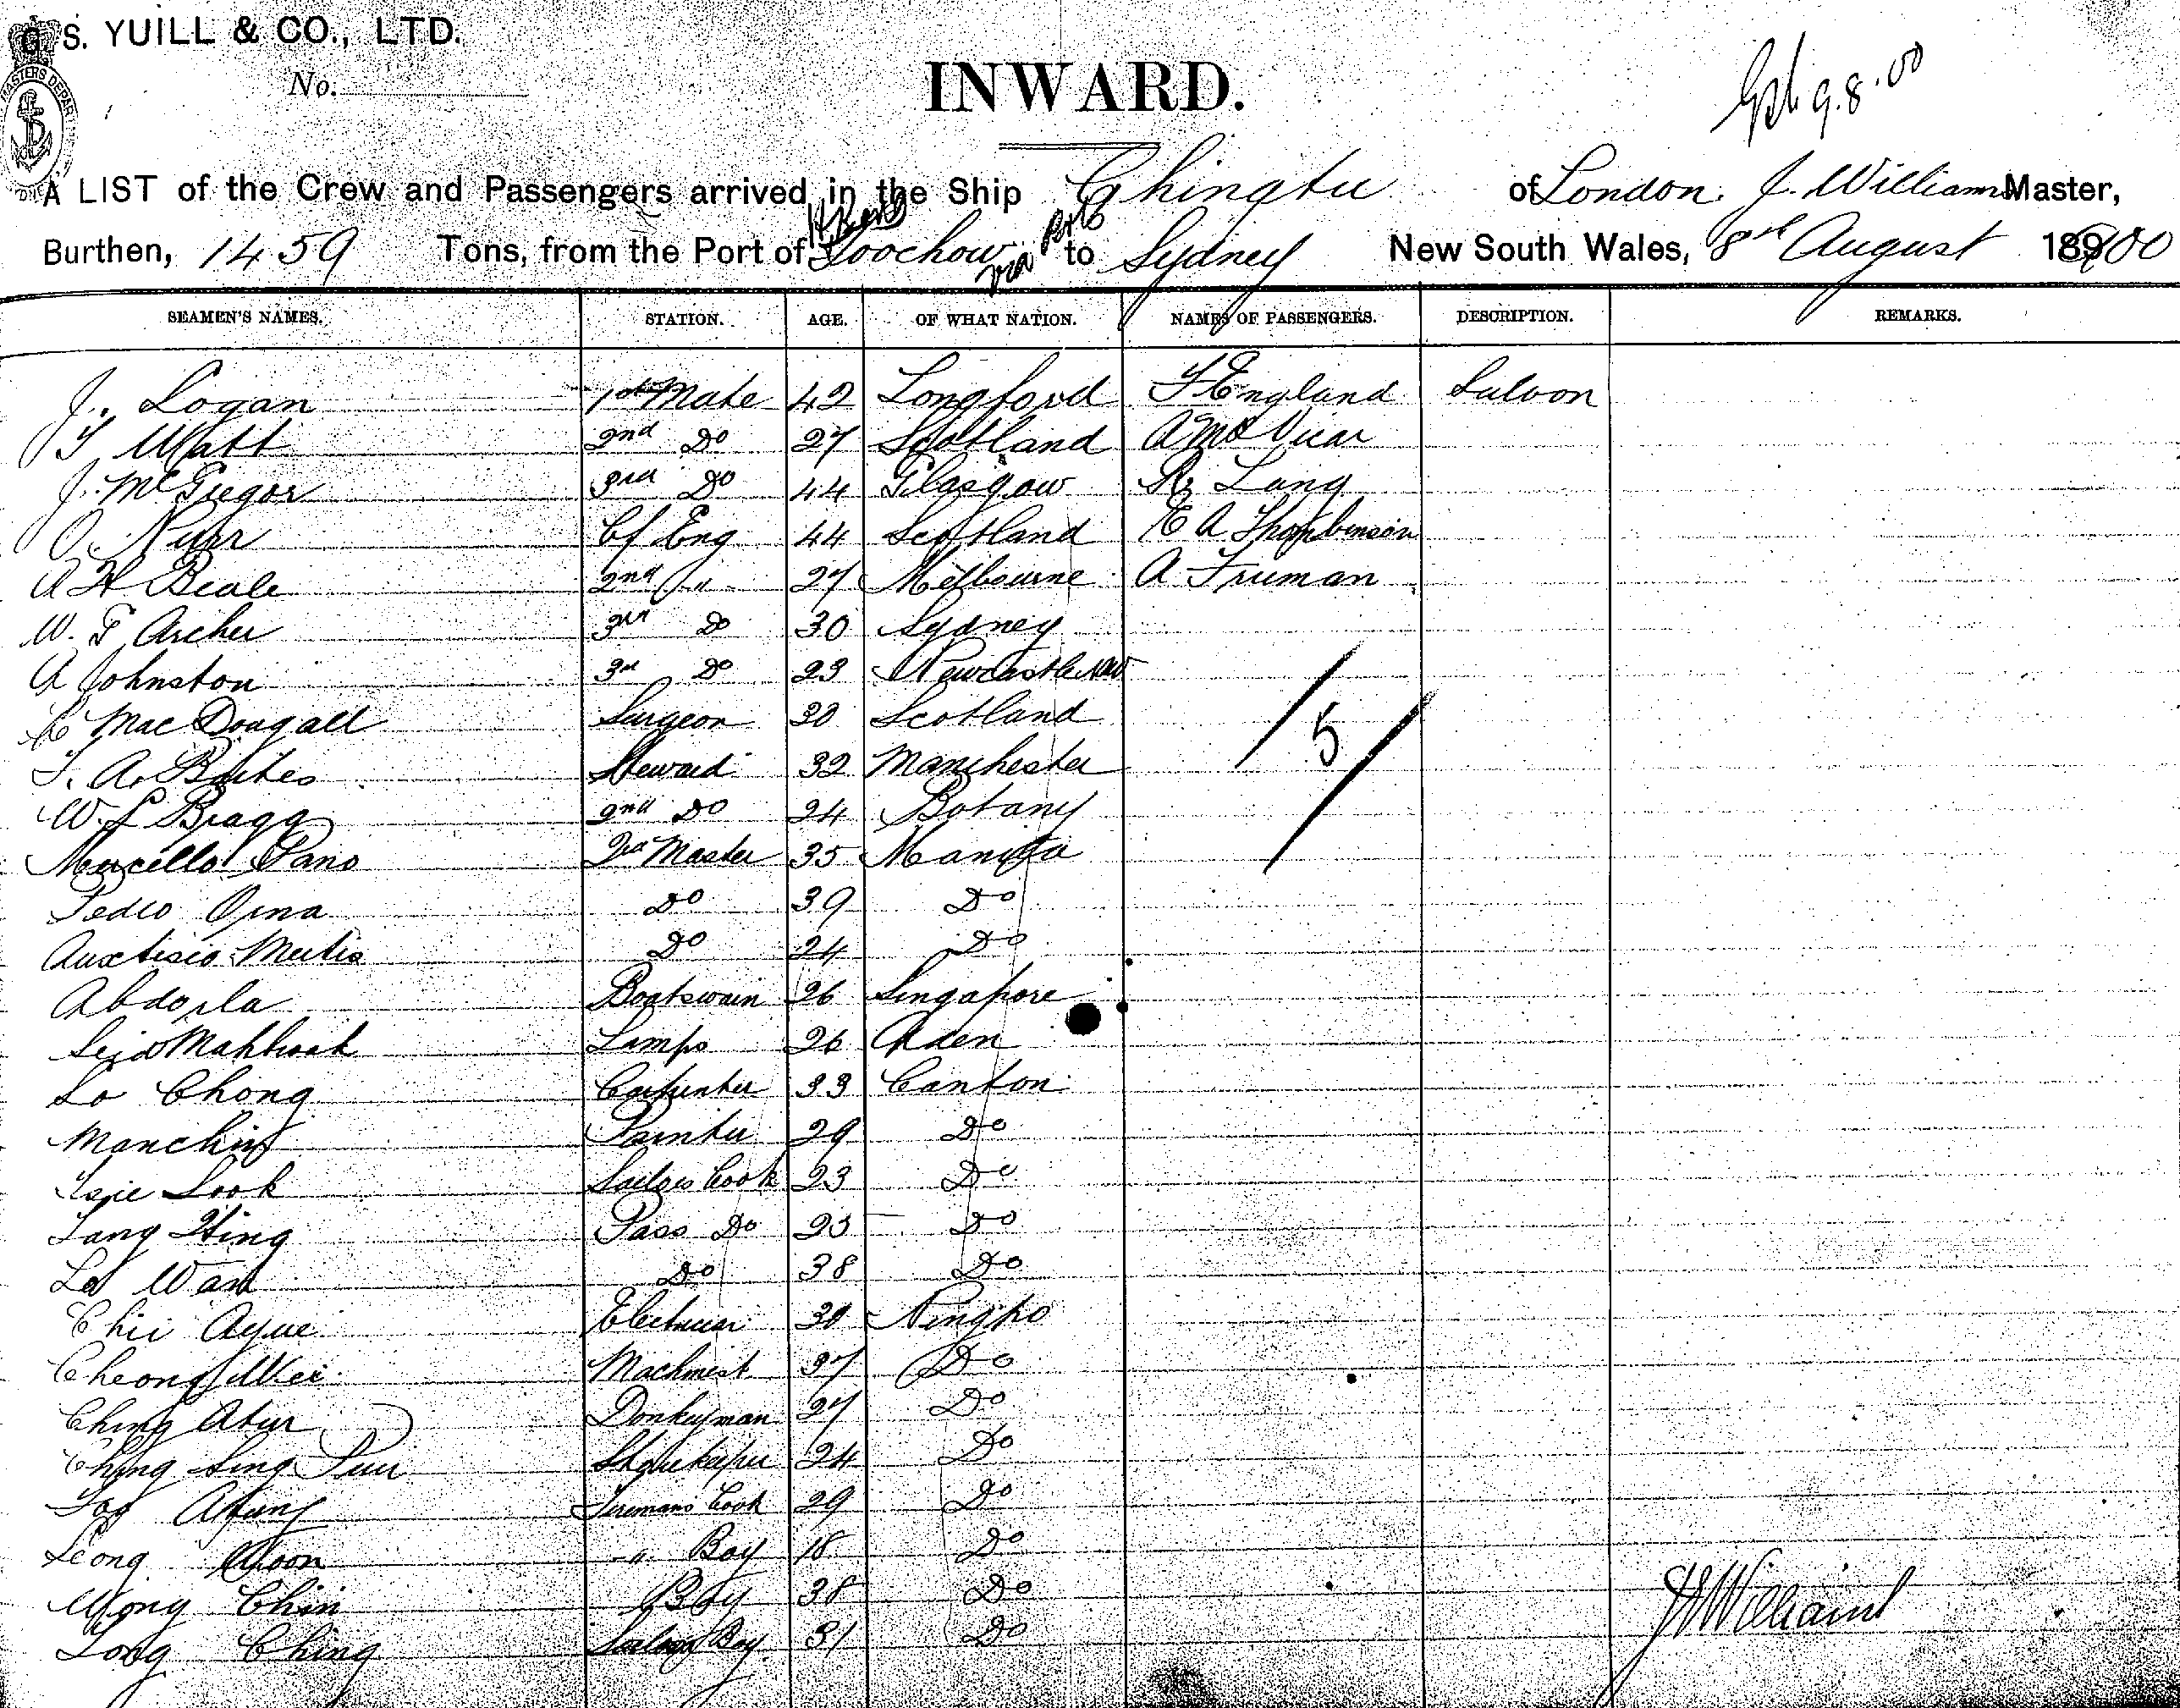 G. S. YUILL & CO., LTD.
No.
INWARD.
9.8.00
A LIST of the Crew and Passengers arrived in the Ship Chingtu of London. J. Williams Master,
Burthen, 1459 Tons, from the Port of Foochow via Ports to Sydney New South Wales, 8th August 1900
SEAMEN'S NAMES. STATION. AGE. OF WHAT NATION. NAMES OF PASSENGERS. DESCRIPTION. REMARKS.
J. Logan 1st Mate 42 Longford F England Saloon
T Watt 2nd Do 27 Scotland A Mc Vicar
J. McGregor 3rd Do 44 Glasgow R. Lang
Cf Eng 44 Scotland E A
A H Beale 2nd " 27 Melbourne A Truman
W. F Archer 3rd Do 30 Sydney
A Johnston 3rd Do 23 Newcastle NSW
C MacDougall Surgeon 30 Scotland
T. A. Bates Steward 32 Manchester
5
W. L Bragg 2nd Do 24 Botany
Marcello Pano Qr Master 35 Manila
Pedro Do 39 Do
Do 24 Do
Abdorla Boatswain 26 Singapore
Lamps 26 Aden
Lo Chong Carpenter 33 Canton
Manching Painter 29 Do
Look Sailors Cook 23 Do
Tang Hing Pass Do 23 Do
Wan Do 38 Do
Chii Ayue Electrician 30 Ningpo
Cheong Wei Machinest 37 Do
Ching Atur Donkeyman 27 Do
Ching Sing Storekeeper 24 Do
Firemans Cook 29 Do
Leong " Boy 18 Do
Wong Chin Boy 38 Do
Long Ching Boy 31 Do
J Williams